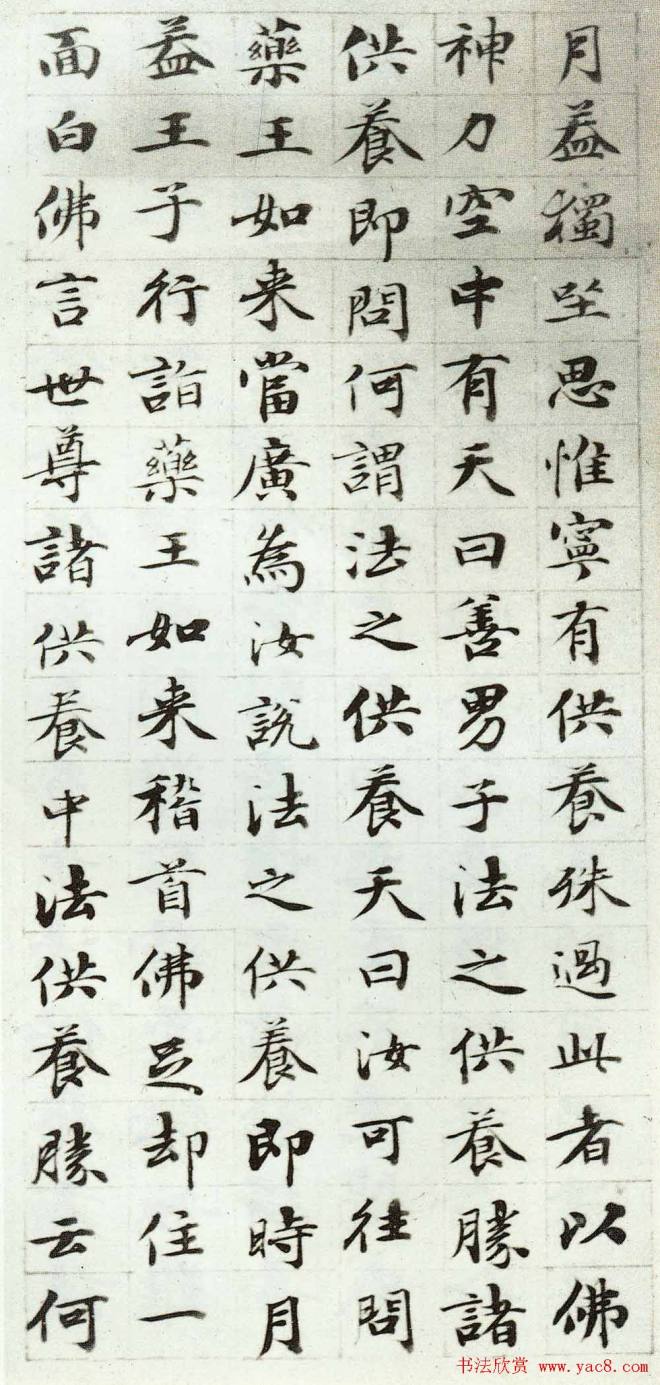 月葢獨坐思惟寧有供養殊過此者以佛
神力空中有天曰善男子法之供養勝諸
供養即問何謂法之供養天曰汝可往問
藥王如来當廣為汝說法之供養即時月
葢王子行詣藥王如来稽首佛足却住一
面白佛言世尊諸供養中法供養勝云何
书法欣赏 www.yac8.com